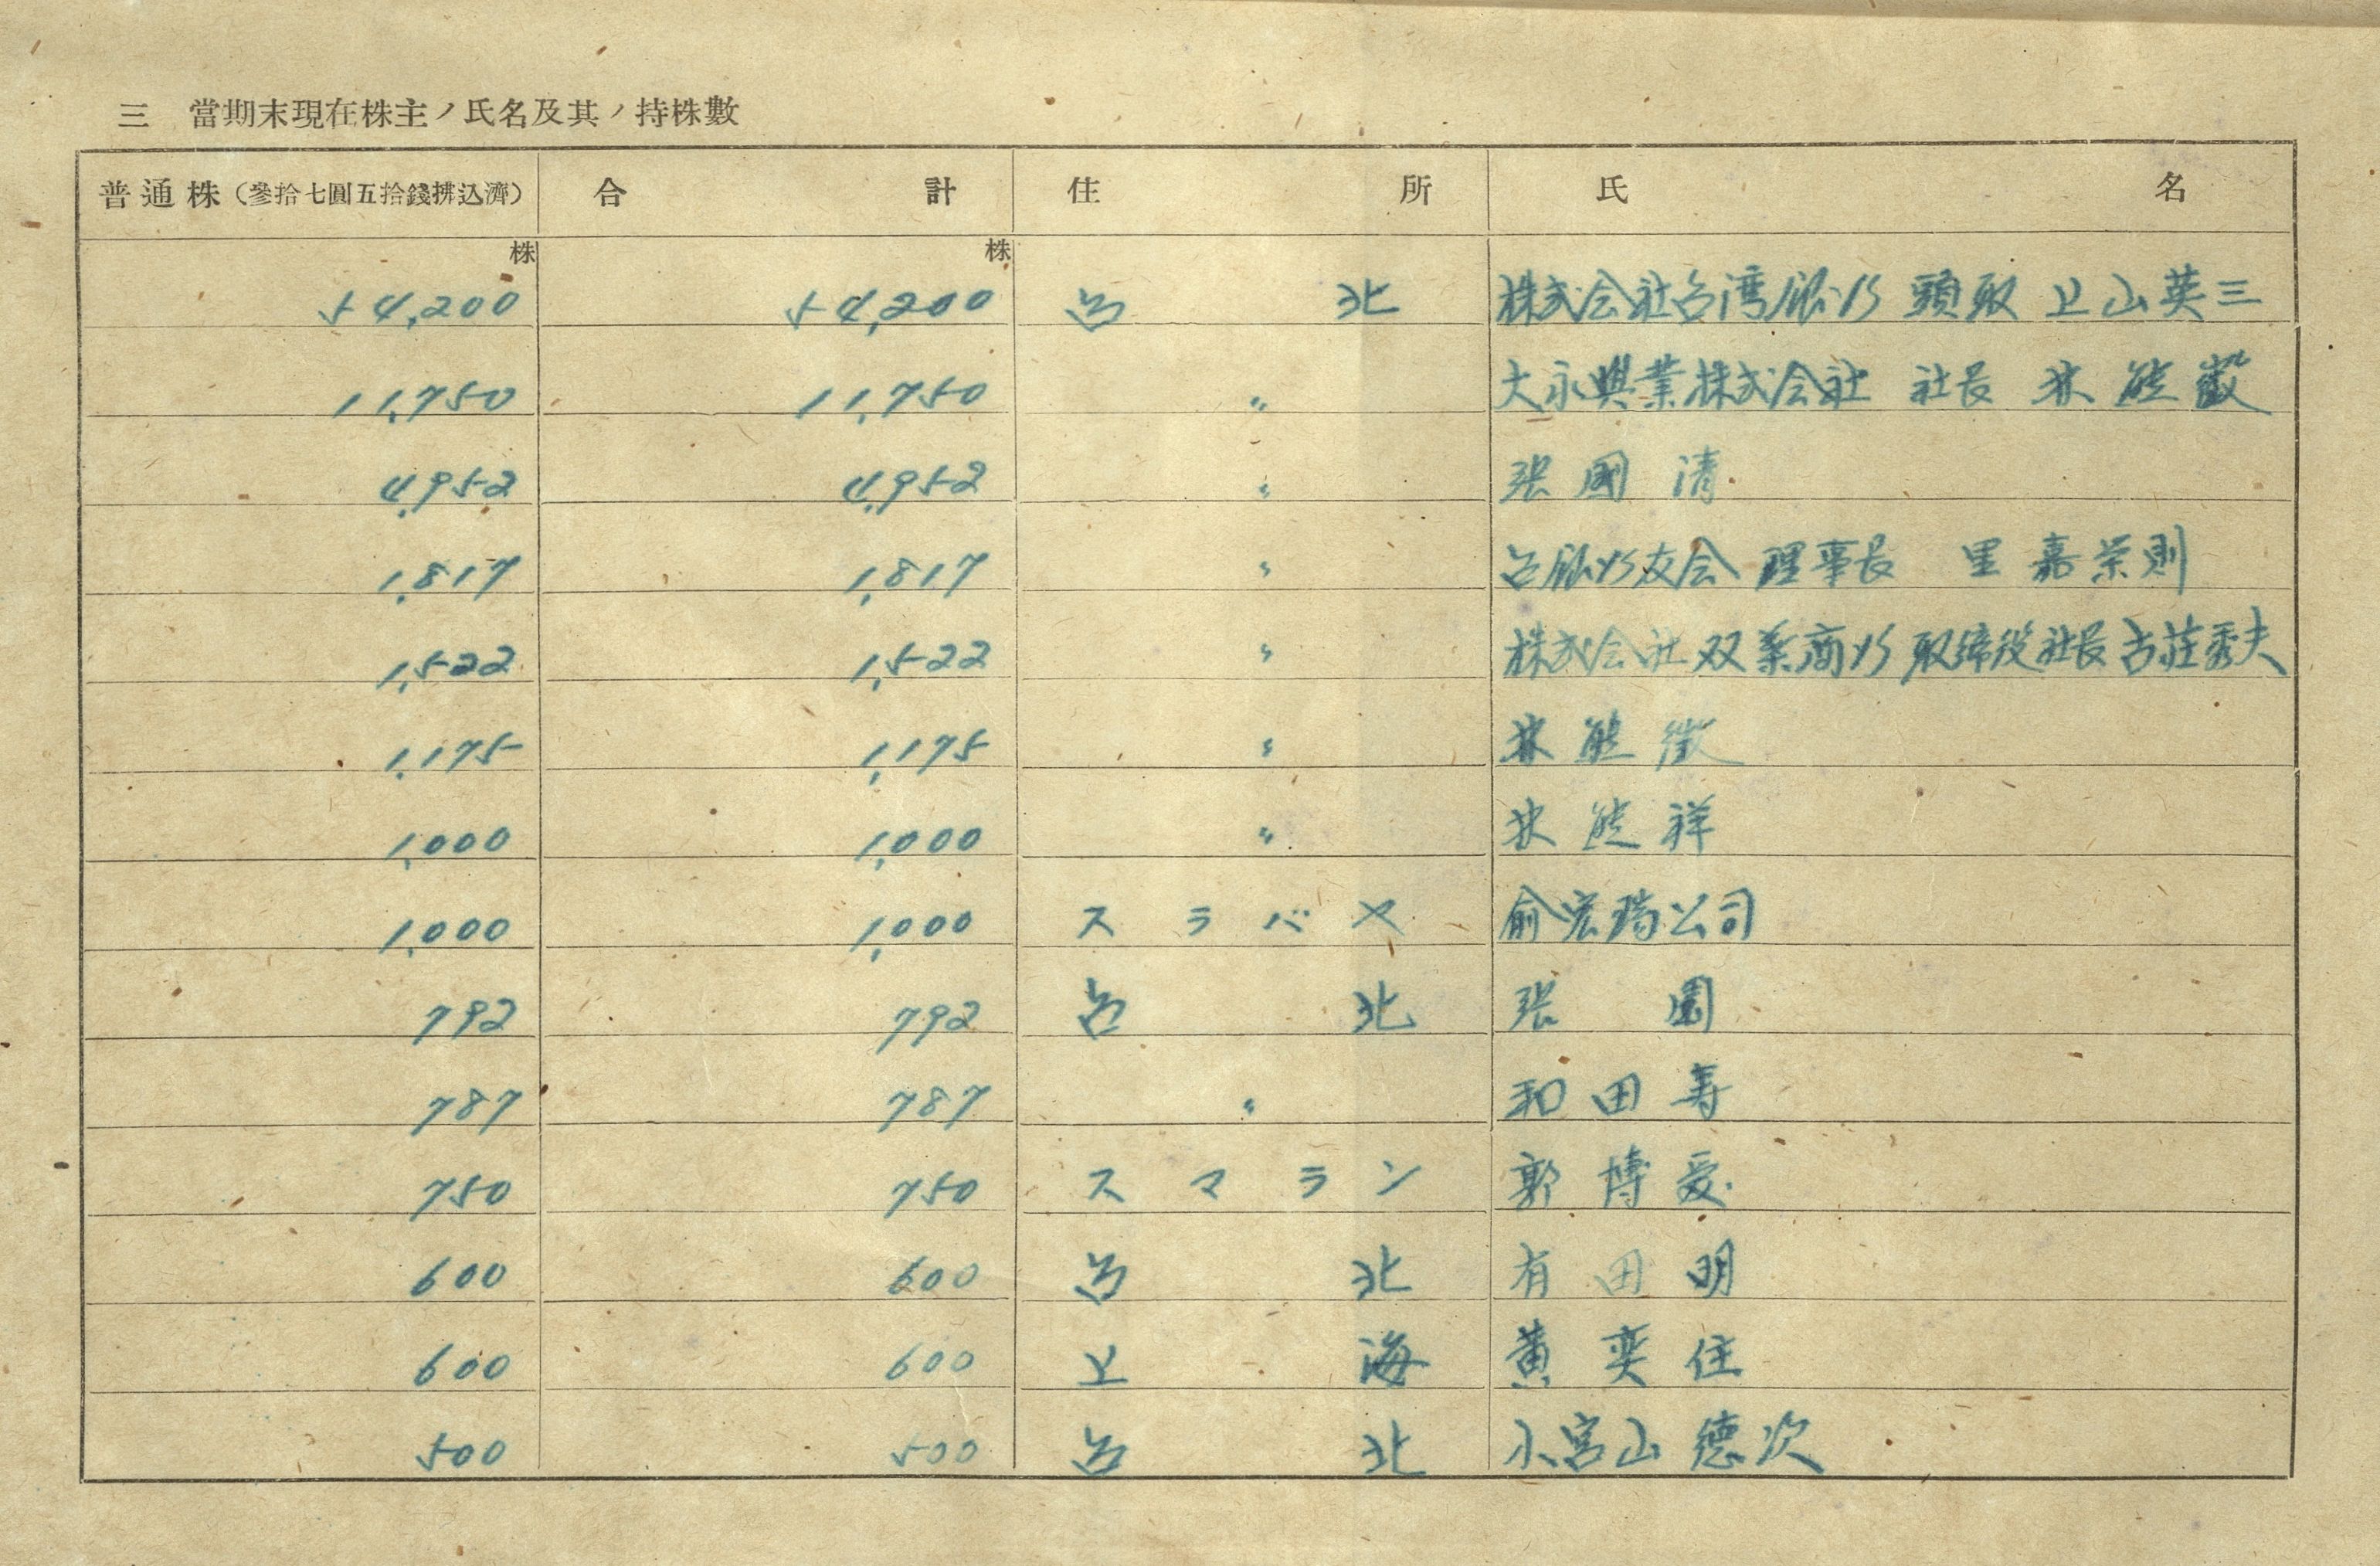 三 當期末現在株主ノ氏名及其ノ持株數
普通株（參拾七圓五拾錢拂込濟） 合計 住所 氏名
株 株
54,200 54,200 台北 株式会社台湾銀行 頭取 上山英三
11,750 11,750 〃 大永興業株式会社 社長 林熊徴
4,952 4,952 〃 張國清
1,817 1,817 〃 台銀行友会 理事長 里嘉栄則
1,522 1,522 〃 株式会社双葉商行 取締役社長 古荘秀夫
1,175 1,175 〃 林熊徴
1,000 1,000 〃 林熊祥
1,000 1,000 スラバヤ 俞宏瑞公司
792 792 台北 張園
787 787 〃 和田寿
750 750 スマラン 郭博愛
600 600 台北 有田明
600 600 上海 黄奕住
500 500 台北 小宮山徳次